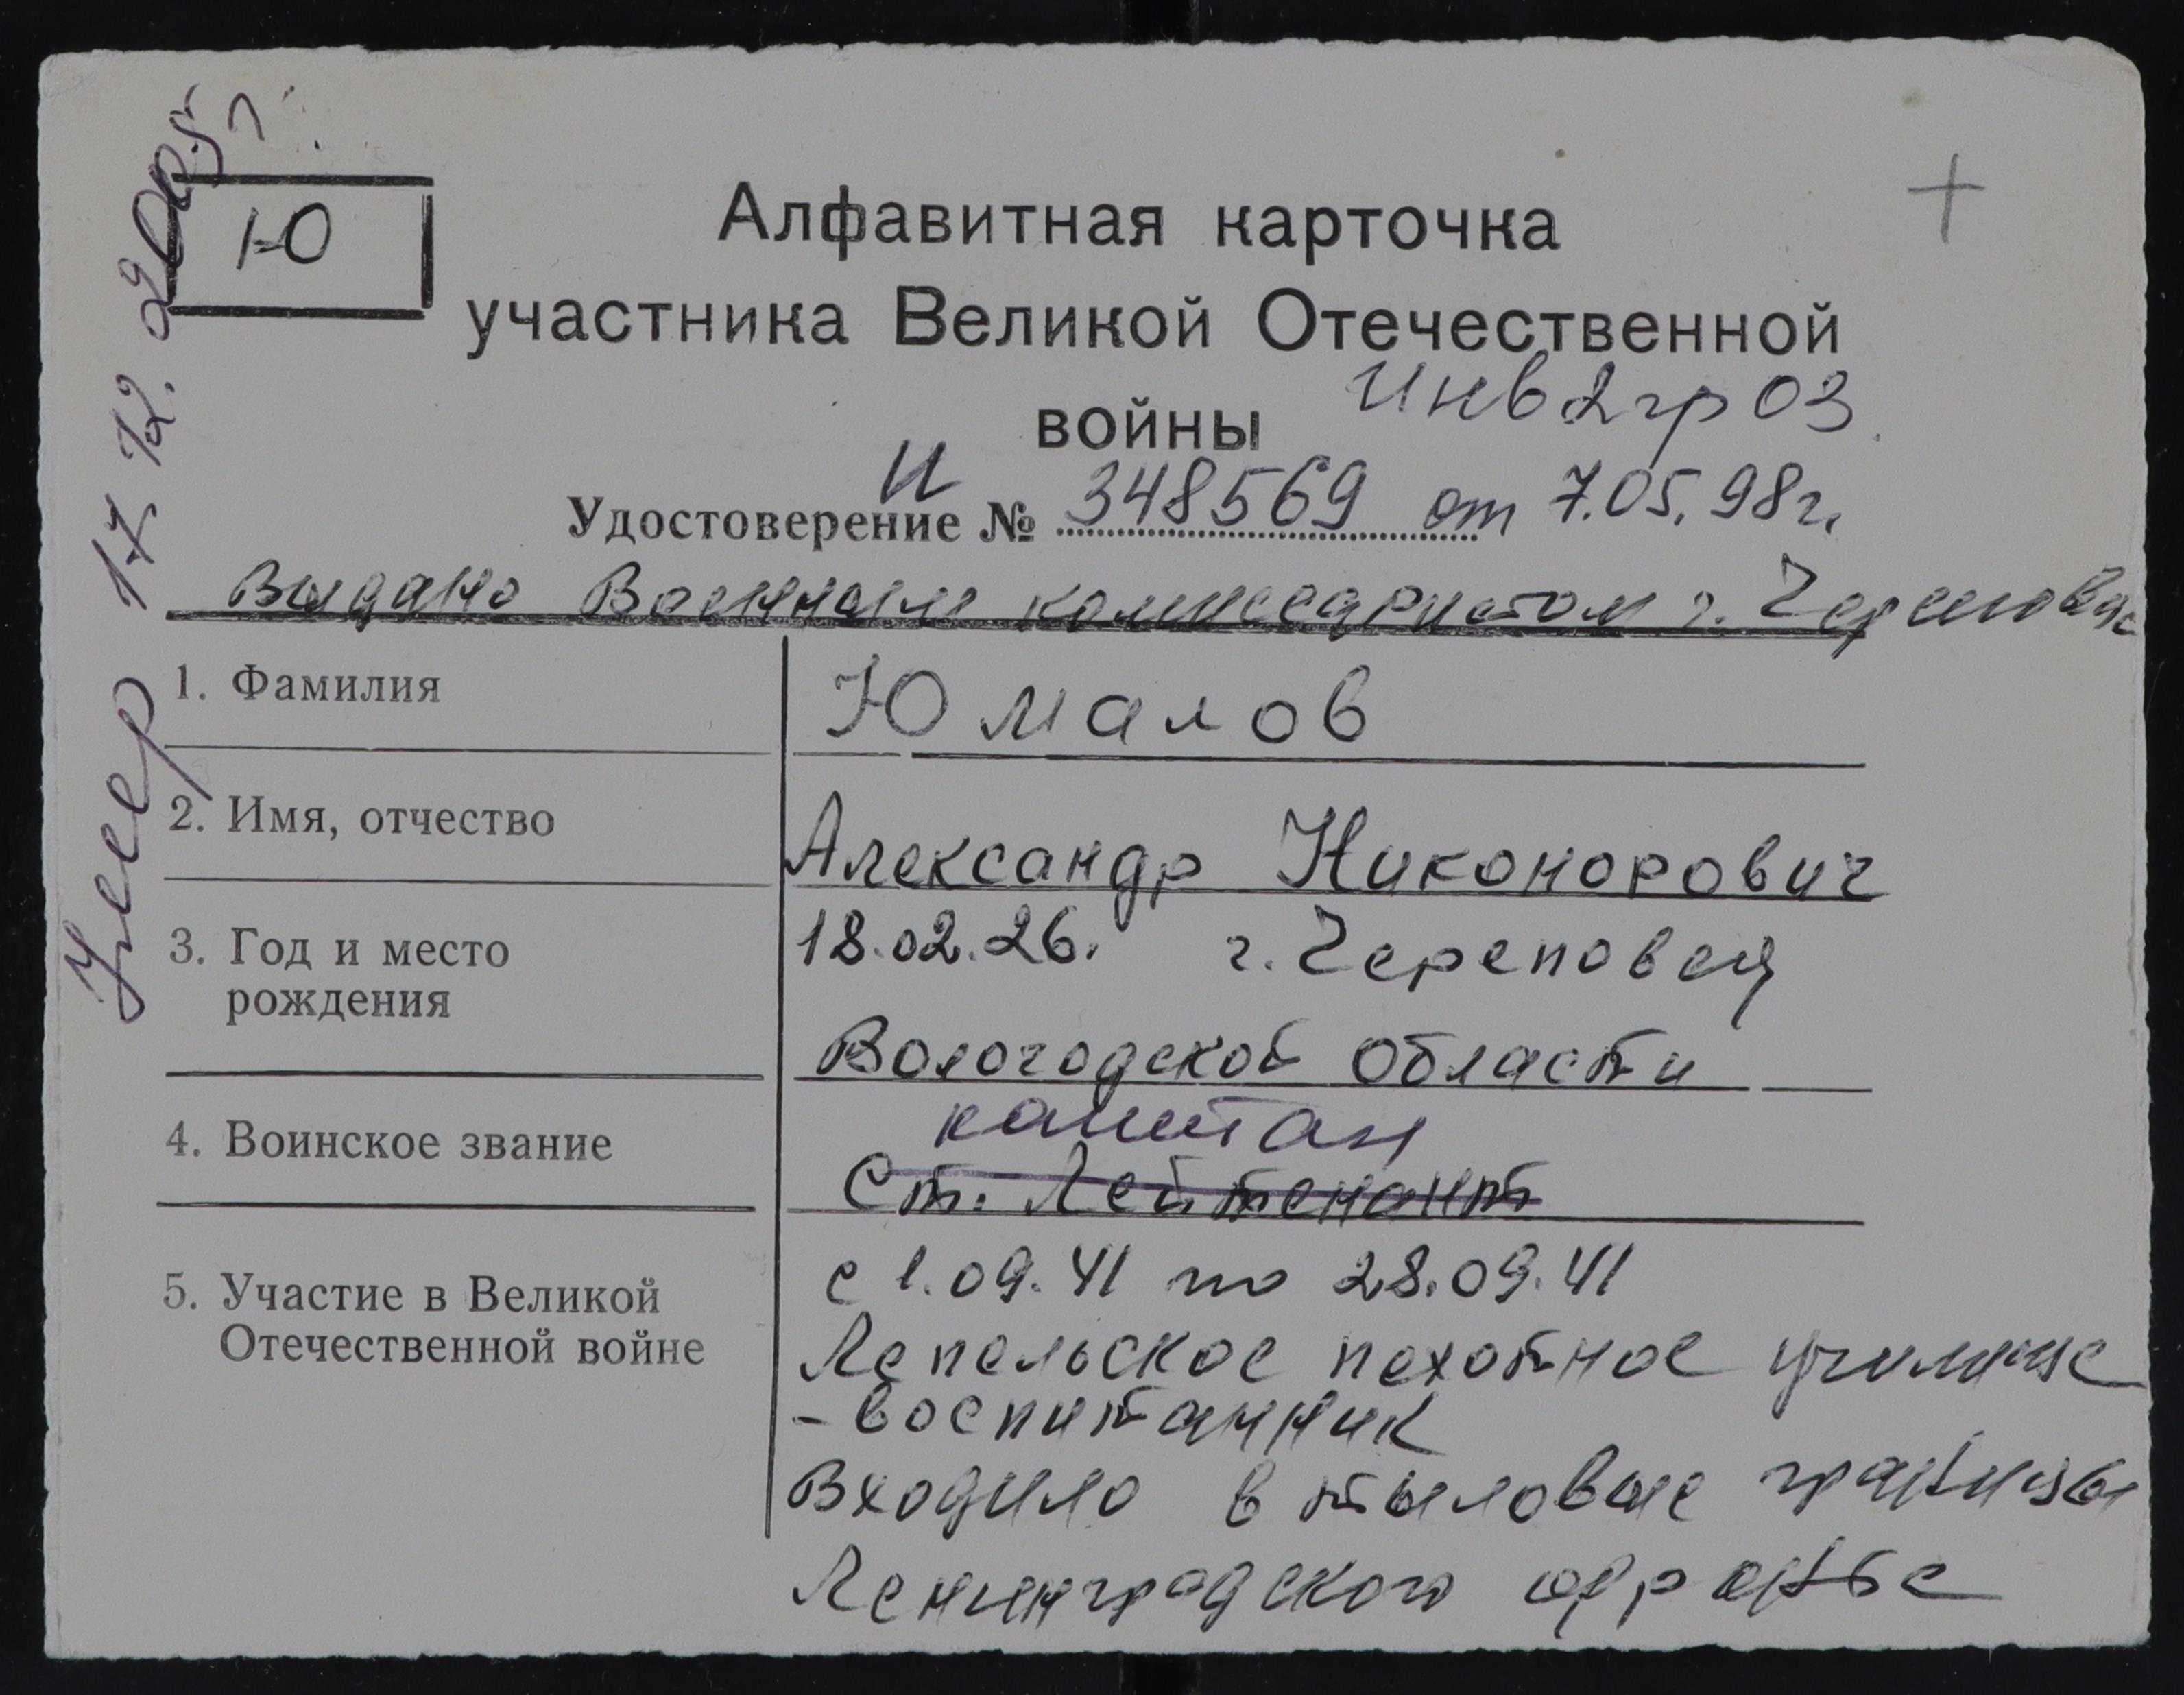 Ю
+
Алфавитная карточка
участника Великой Отечественной
войны
Инв 2 гр ОЗ
И
Удостоверение № 348569 от 7.05.98г.
Выдано Военным комиссариатом г. Череповца
1. Фамилия
Юмалов
2. Имя, отчество
Александр Никонорович
3. Год и место
рождения
18.02.26. г. Череповец
Вологодской области
4. Воинское звание
капитан
Ст. Лейтенант
5. Участие в Великой
Отечественной войне
с 1.09.41 по 28.09.41
Лепельское пехотное училище
- воспитанник
Входило в тыловые границы
Ленинградского фронта
Умер 17.12.2005г.